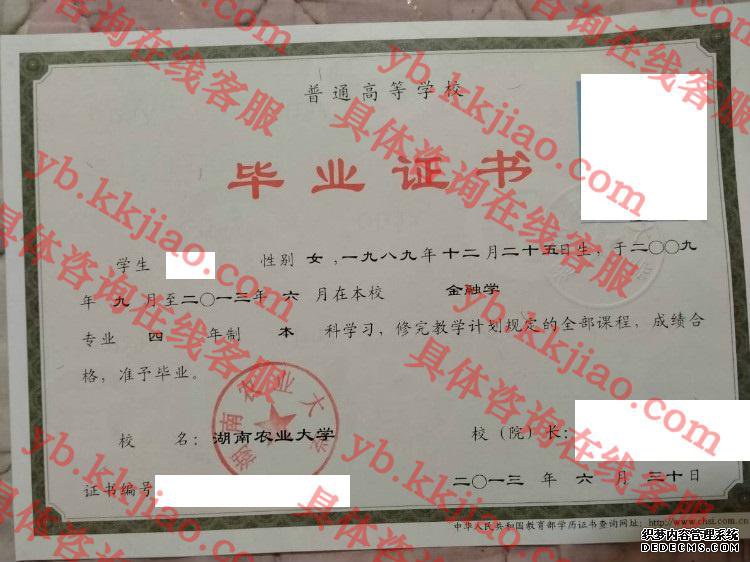 普通高等学校
毕业证书
学生 性别 女 ,一九八九年十二月二十五日生，于二〇〇九
年 九 月至二〇一三年 六 月在本校 金融学
专业 四 年制 本 科学习，修完教学计划规定的全部课程，成绩合
格，准予毕业。
校 名：湖南农业大学 校（院）长：
证书编号 二〇一三 年 六 月 三十日
中华人民共和国教育部学历证书查询网址：http://www.chsi.com.cn
湖南农业大学
yb.kkjiao.com
具体咨询在线客服
织梦内容管理系统
DEDECMS.COM